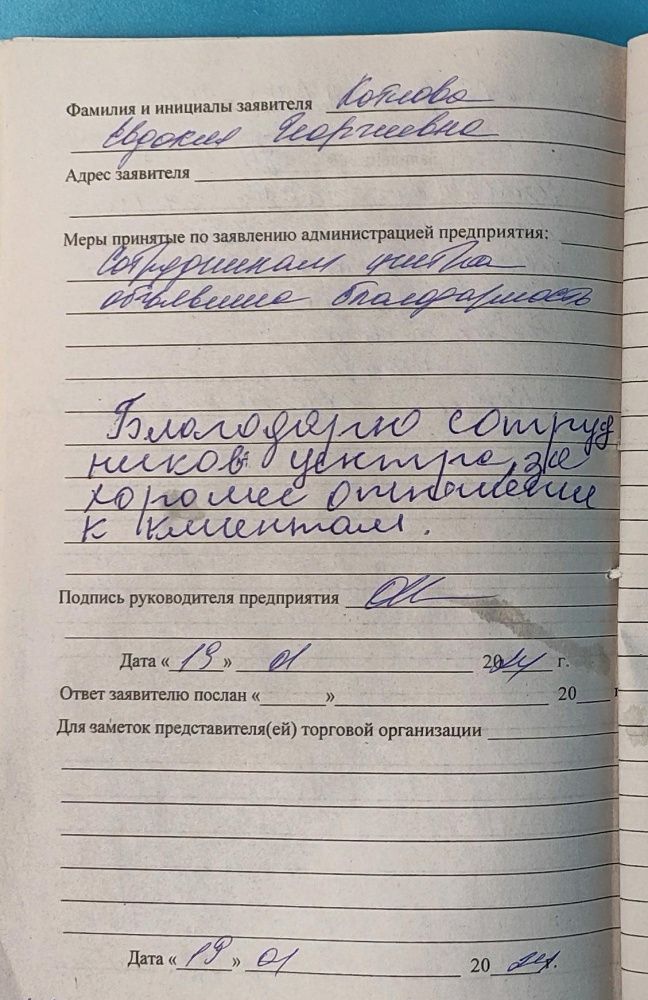 Фамилия и инициалы заявителя Котлова
Евдокия Георгиевна
Адрес заявителя
Меры принятые по заявлению администрацией предприятия:
Сотрудникам центра
объявлена благодарность
Благодарю сотруд
ников центра, за
хорошее отношение
к клиентам.
Подпись руководителя предприятия
Дата « 19 » 01 2024 г.
Ответ заявителю послан « » 20 г
Для заметок представителя(ей) торговой организации
Дата « 19 » 01 20 24.